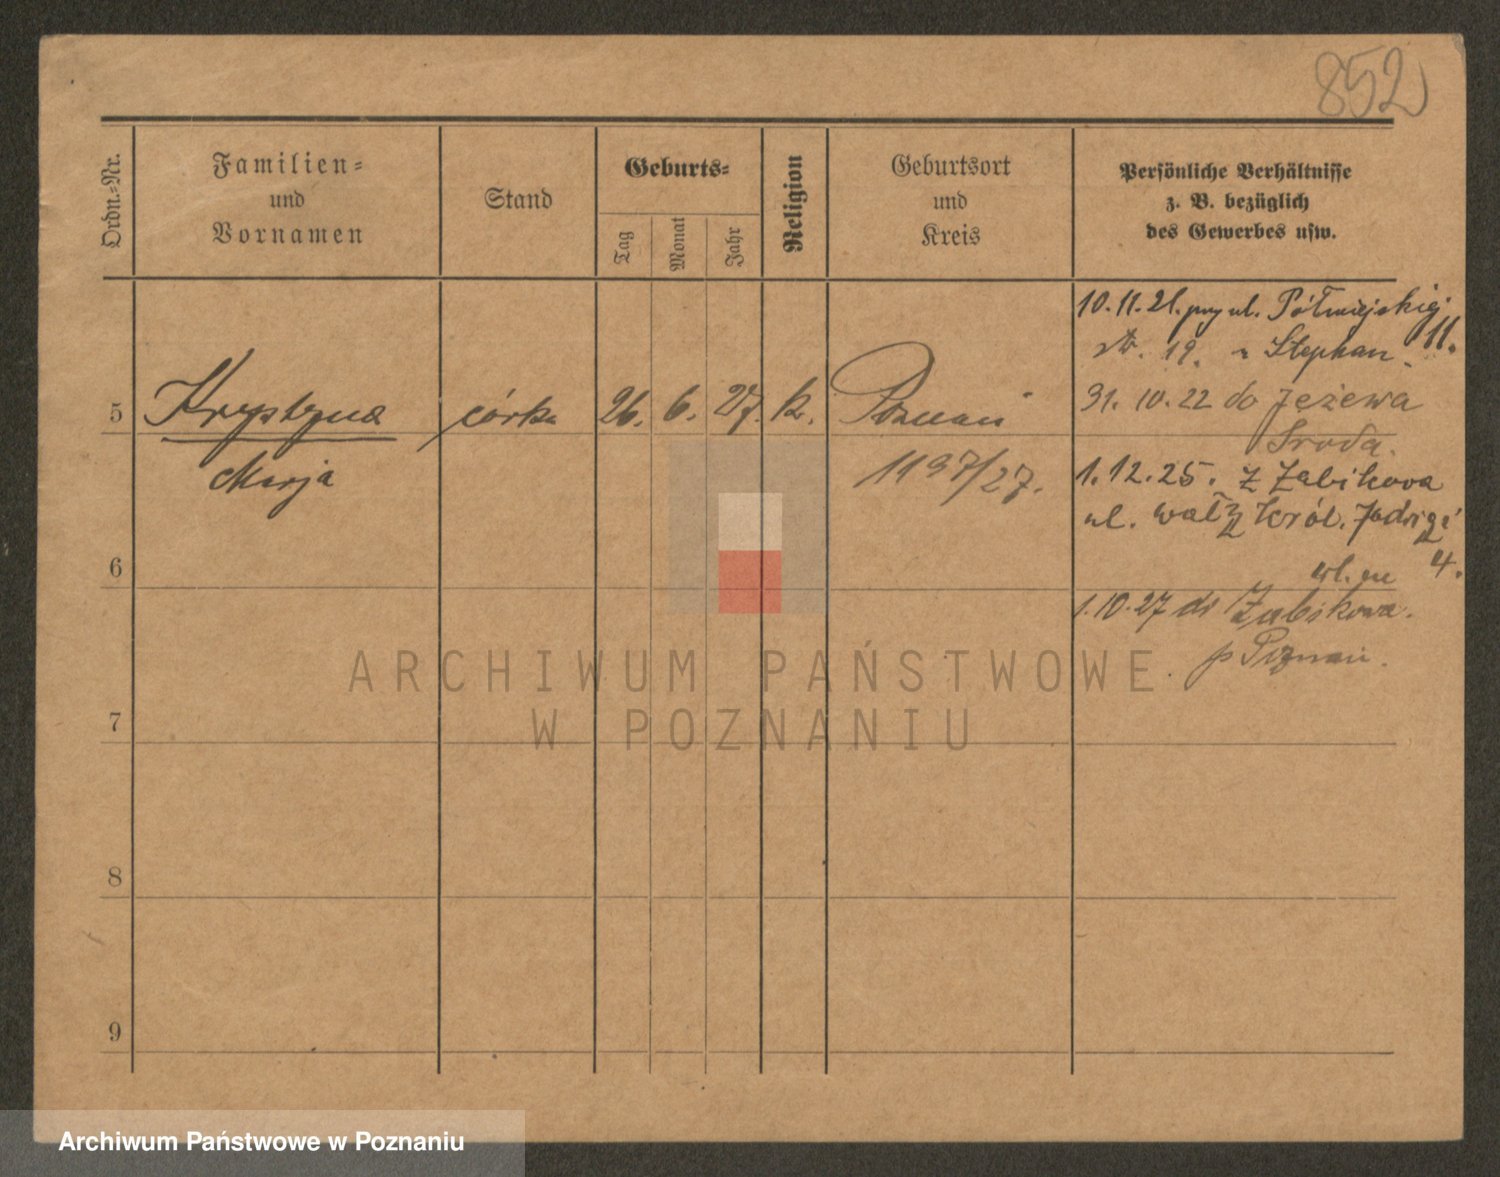 852
Ordn.-Nr.
Familien-
und
Vornamen
Stand
Geburts-
Tag
Monat
Jahr
Religion
Geburtsort
und
Kreis
Persönliche Verhältnisse
z. B. bezüglich
des Gewerbes usw.
10.11.21. przy ul. Półwiejskiej
19. Stephan. 11.
5 Krystyna córka 26. 6. 27. k. Poznań
31.10.22 do Jeżewa
Środa.
Marja
1197/27.
1.12.25. z Żabikowa
ul. Wały Król. Jadwigi
4.
6
1.10.27 do Żabikowa.
p Poznań.
ARCHIWUM PAŃSTWOWE
W POZNANIU
7
8
9
Archiwum Państwowe w Poznaniu